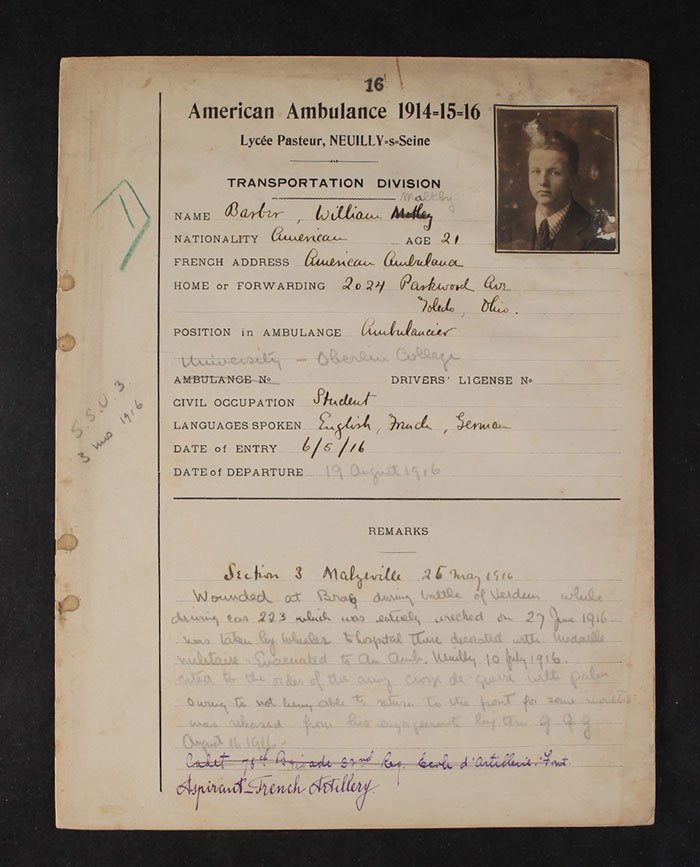 16
American Ambulance 1914=15=16
Lycée Pasteur, NEUILLY=s=Seine
TRANSPORTATION DIVISION
Maltby
NAME Barber, William Motley
NATIONALITY American AGE 21
FRENCH ADDRESS American Ambulance
HOME or FORWARDING 2024 Parkwood Ave
Toledo, Ohio.
POSITION in AMBULANCE Ambulancier
University - Oberlin College
AMBULANCE No DRIVERS' LICENSE No
CIVIL OCCUPATION Student
LANGUAGES SPOKEN English, French, German
DATE of ENTRY 6/5/16
DATE of DEPARTURE 19 August 1916
1
S.S.U 3
3 mos. 1916
REMARKS
Section 3 Malzeville 25 May 1916
Wounded at Bras during battle of Verdun while
driving car 223 which was entirely wrecked on 27 June 1916.
was taken by Wheeler to hospital there decorated with medaille
militaire. Evacuated to Am Amb. Neuilly 10 July 1916.
cited to the order of the army croix de guerre with palm
owing to not being able to return to the front for some months
was released from his engagement by the G Q G
August 16 1916.
Cadet Brigade 82nd Reg. Ecole d'Artillerie. Font.
Aspirant-French Artillery